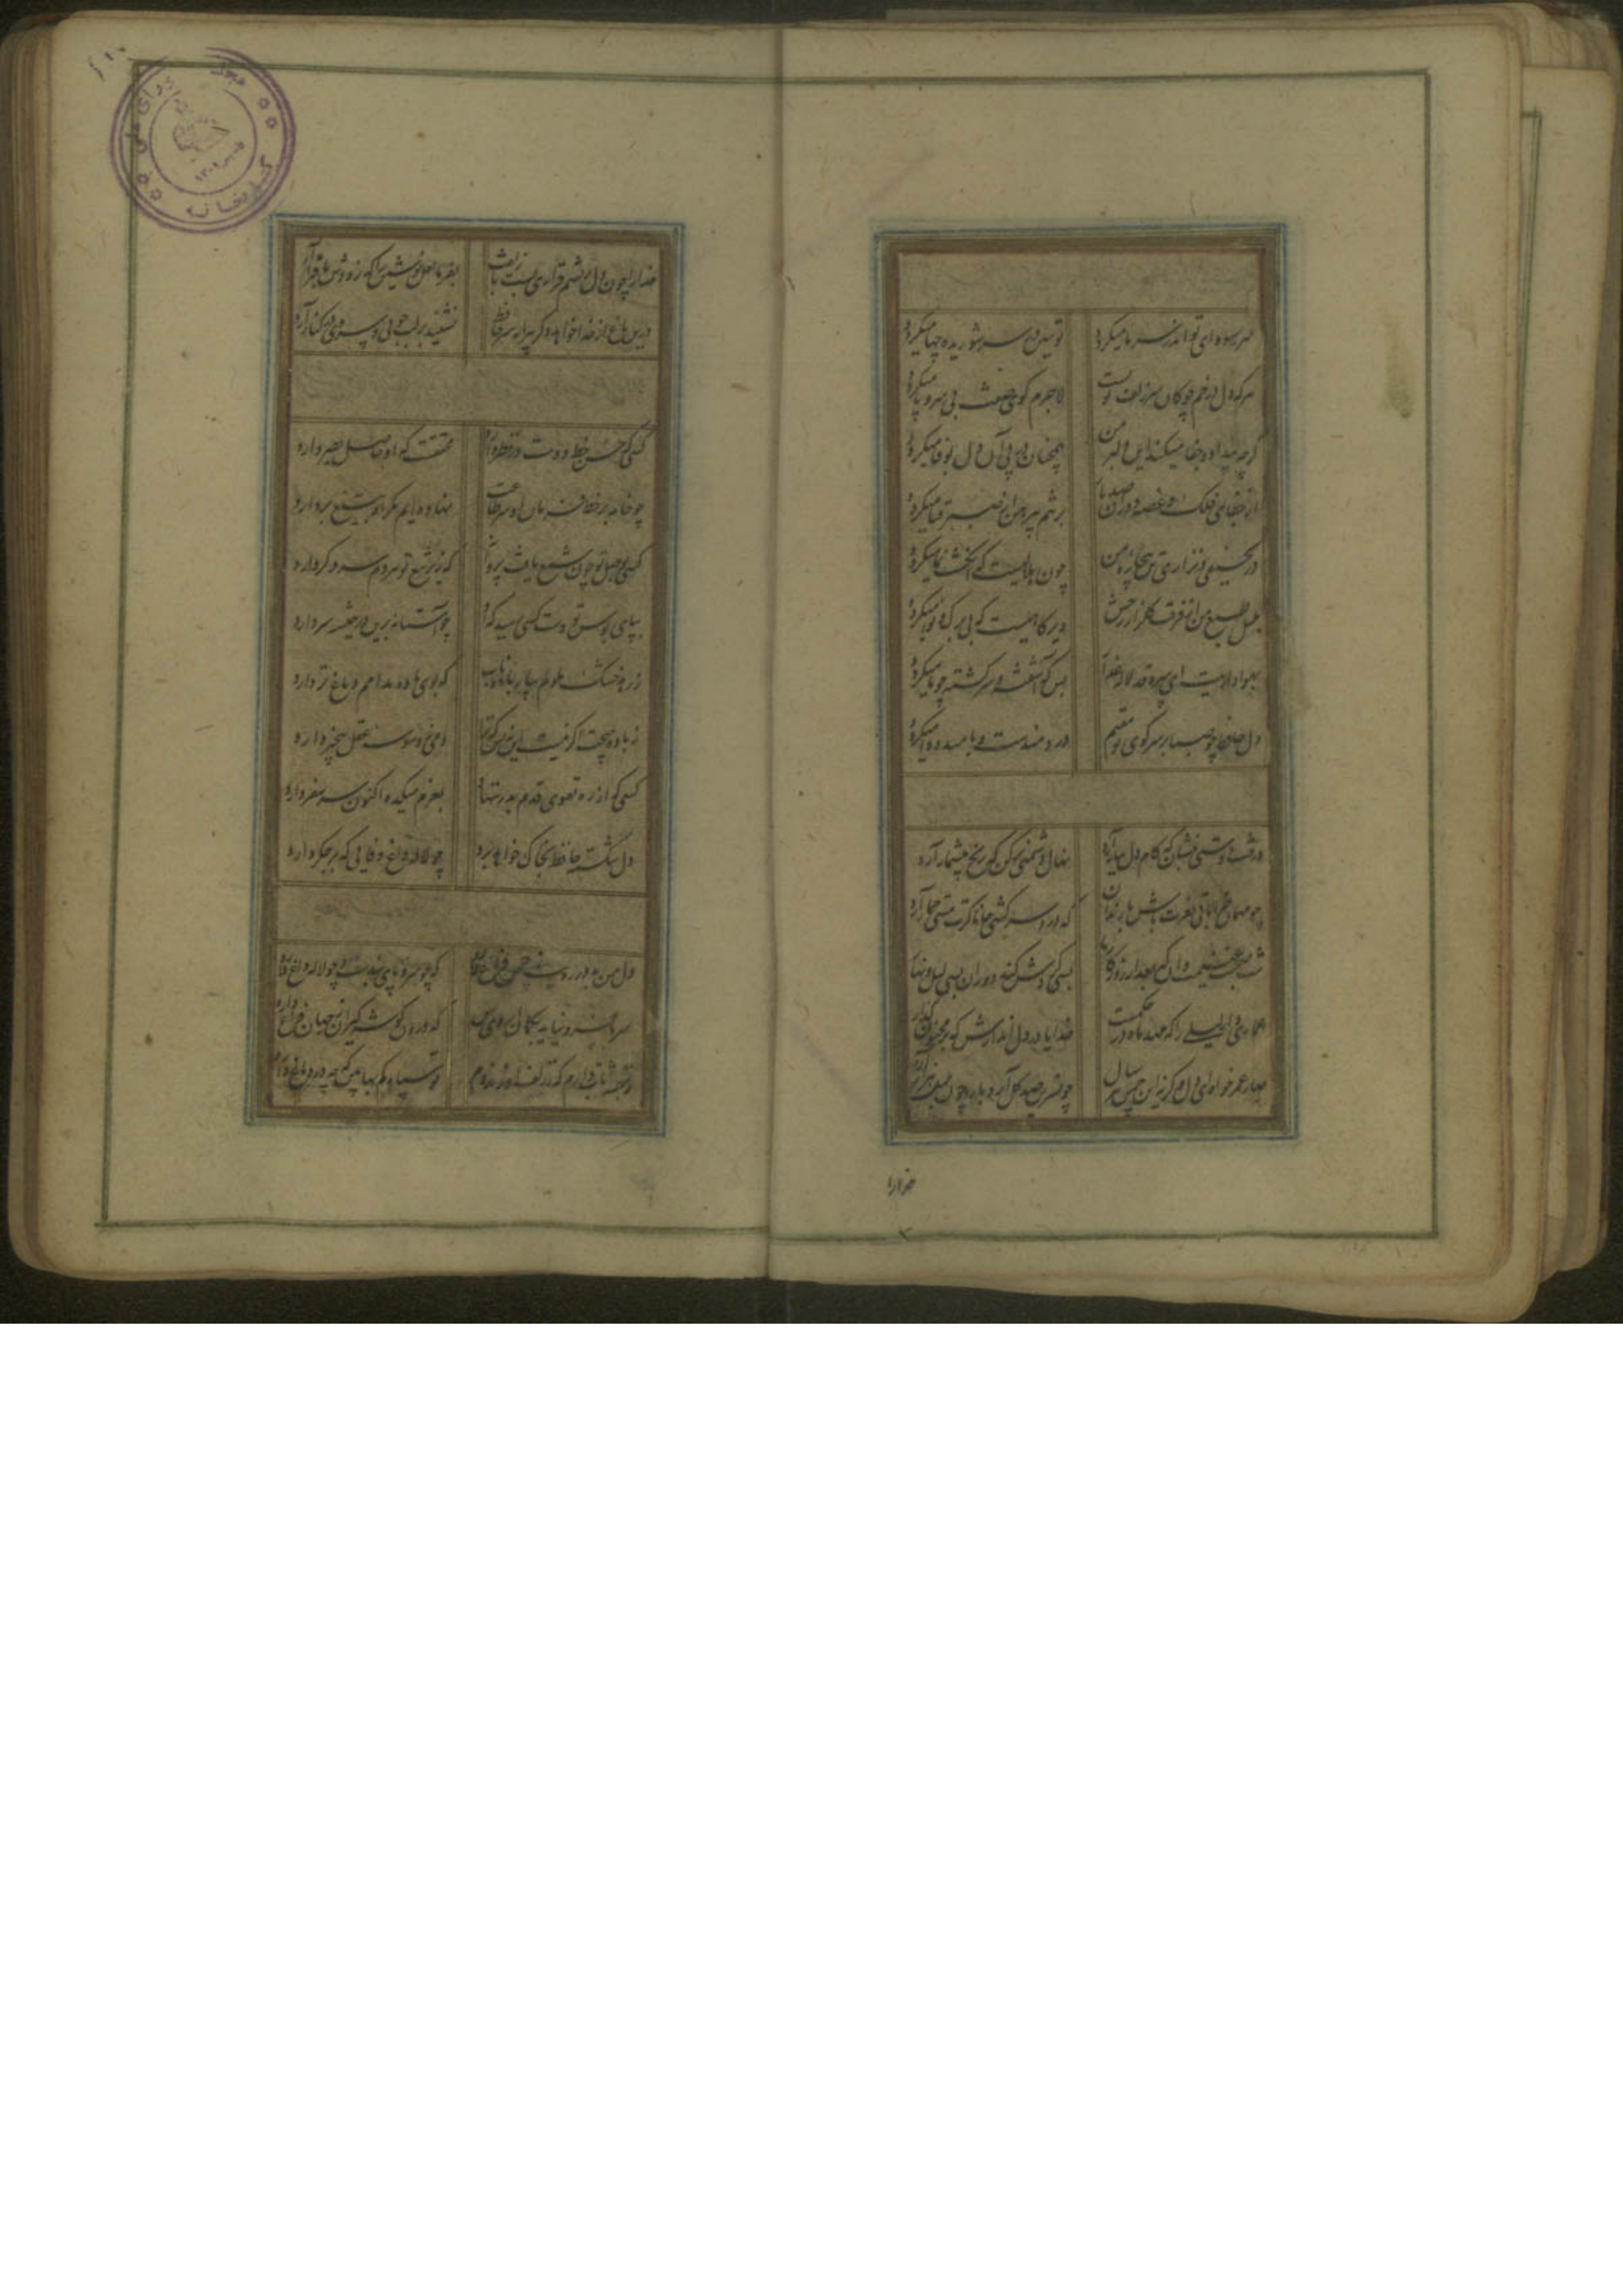 هر سودای تو اندر سر ما میکردد تو ببین در سر شوریده چها میکردد
هرکه دل در خم چوکان سر زلف تو بست لاجرم کوی صفت بی سر و پا میکردد
کرچه بیداد و جفا میکند این دلبر من همچنان در پی آن دل بوفا میکردد
از جفای فلک و غصه دوران صد بار برتنم پیرهن صبر قبا میکردد
در نحیفی و نزاری تن بیچاره من چون هلالیست که انکشت نما میکردد
بلبل طبع من از فرقت کلزار رخش دیرکاهیست که بی برک و نوا میکردد
بهواداریت ای سرو قد لاله عذار بس کو آشفته و سرکشته چو ما میکردد
دل حافظ چو صبا بر سر کوی تو مقیم دردمندست و بامید دوا میکردد
درخت دوستی بنشان که کام دل ببار آرد نهال دشمنی برکن که رنج بیشمار آرد
چو مهمان خراباتی بعزت باش با رندان که درد سر کشی جانا کرت مستی خمار آرد
شب صحبت غنیمت دان که بعد از روزکار ما بسی کردش کند دوران بسی لیل و نهار آرد
عماری دار لیلی را که مهد ماه در حکمست خدایا در دل اندازش که بر مجنون کذار آرد
بهار عمر خواه ای دل وکرنه این چمن هر سال چو نسرین صد کل آرد بار و چون بلبل هزار آرد
خدارا
خدا را چون دل ریشم قراری بست با زلفت بفرما لعل نوشین را که زودش با قرار آرد
درین باغ از خدا خواهد دکر پیرانه سر حافظ نشیند بر لب جویی و سروی در کنار آرد
کسی که حسن خط دوست در نظر دارد محققست که او حاصل بصر دارد
چو خامه بر خط فرمان او سر طاعت نهاده‌ایم مکر او بتیغ بردارد
کسی بوصل تو چون شمع یافت پروانه که زیر تیغ تو هر دم سر دکر دارد
بپای بوس تو دست کسی رسید که او چو آستانه برین در همیشه سر دارد
ز زهد خشک ملولم بیار باده ناب که بوی باده مدامم دماغ تر دارد
ز باده هیچت اکر نیست این نه بس که ترا دمی ز وسوسه عقل بیخبر دارد
کسی که از ره تقوی قدم برون ننهاد بعزم میکده اکنون سر سفر دارد
دل شکسته حافظ بخاک خواهد برد چو لاله داغ وفایی که بر جکر دارد
دل من بدور رویت ز چمن فراغ دارد که چو سرو پای بندست و چو لاله داغ دارد
سر ما فرو نیاید بکمان ابروی کس که درون کوشه کیران ز جهان فراغ دارد
ز بنفشه تاب دارم که ز زلف او زند دم تو سیاه کم بها بین که چه در دماغ دارد
کتابخانه
مجلس شورای ملی